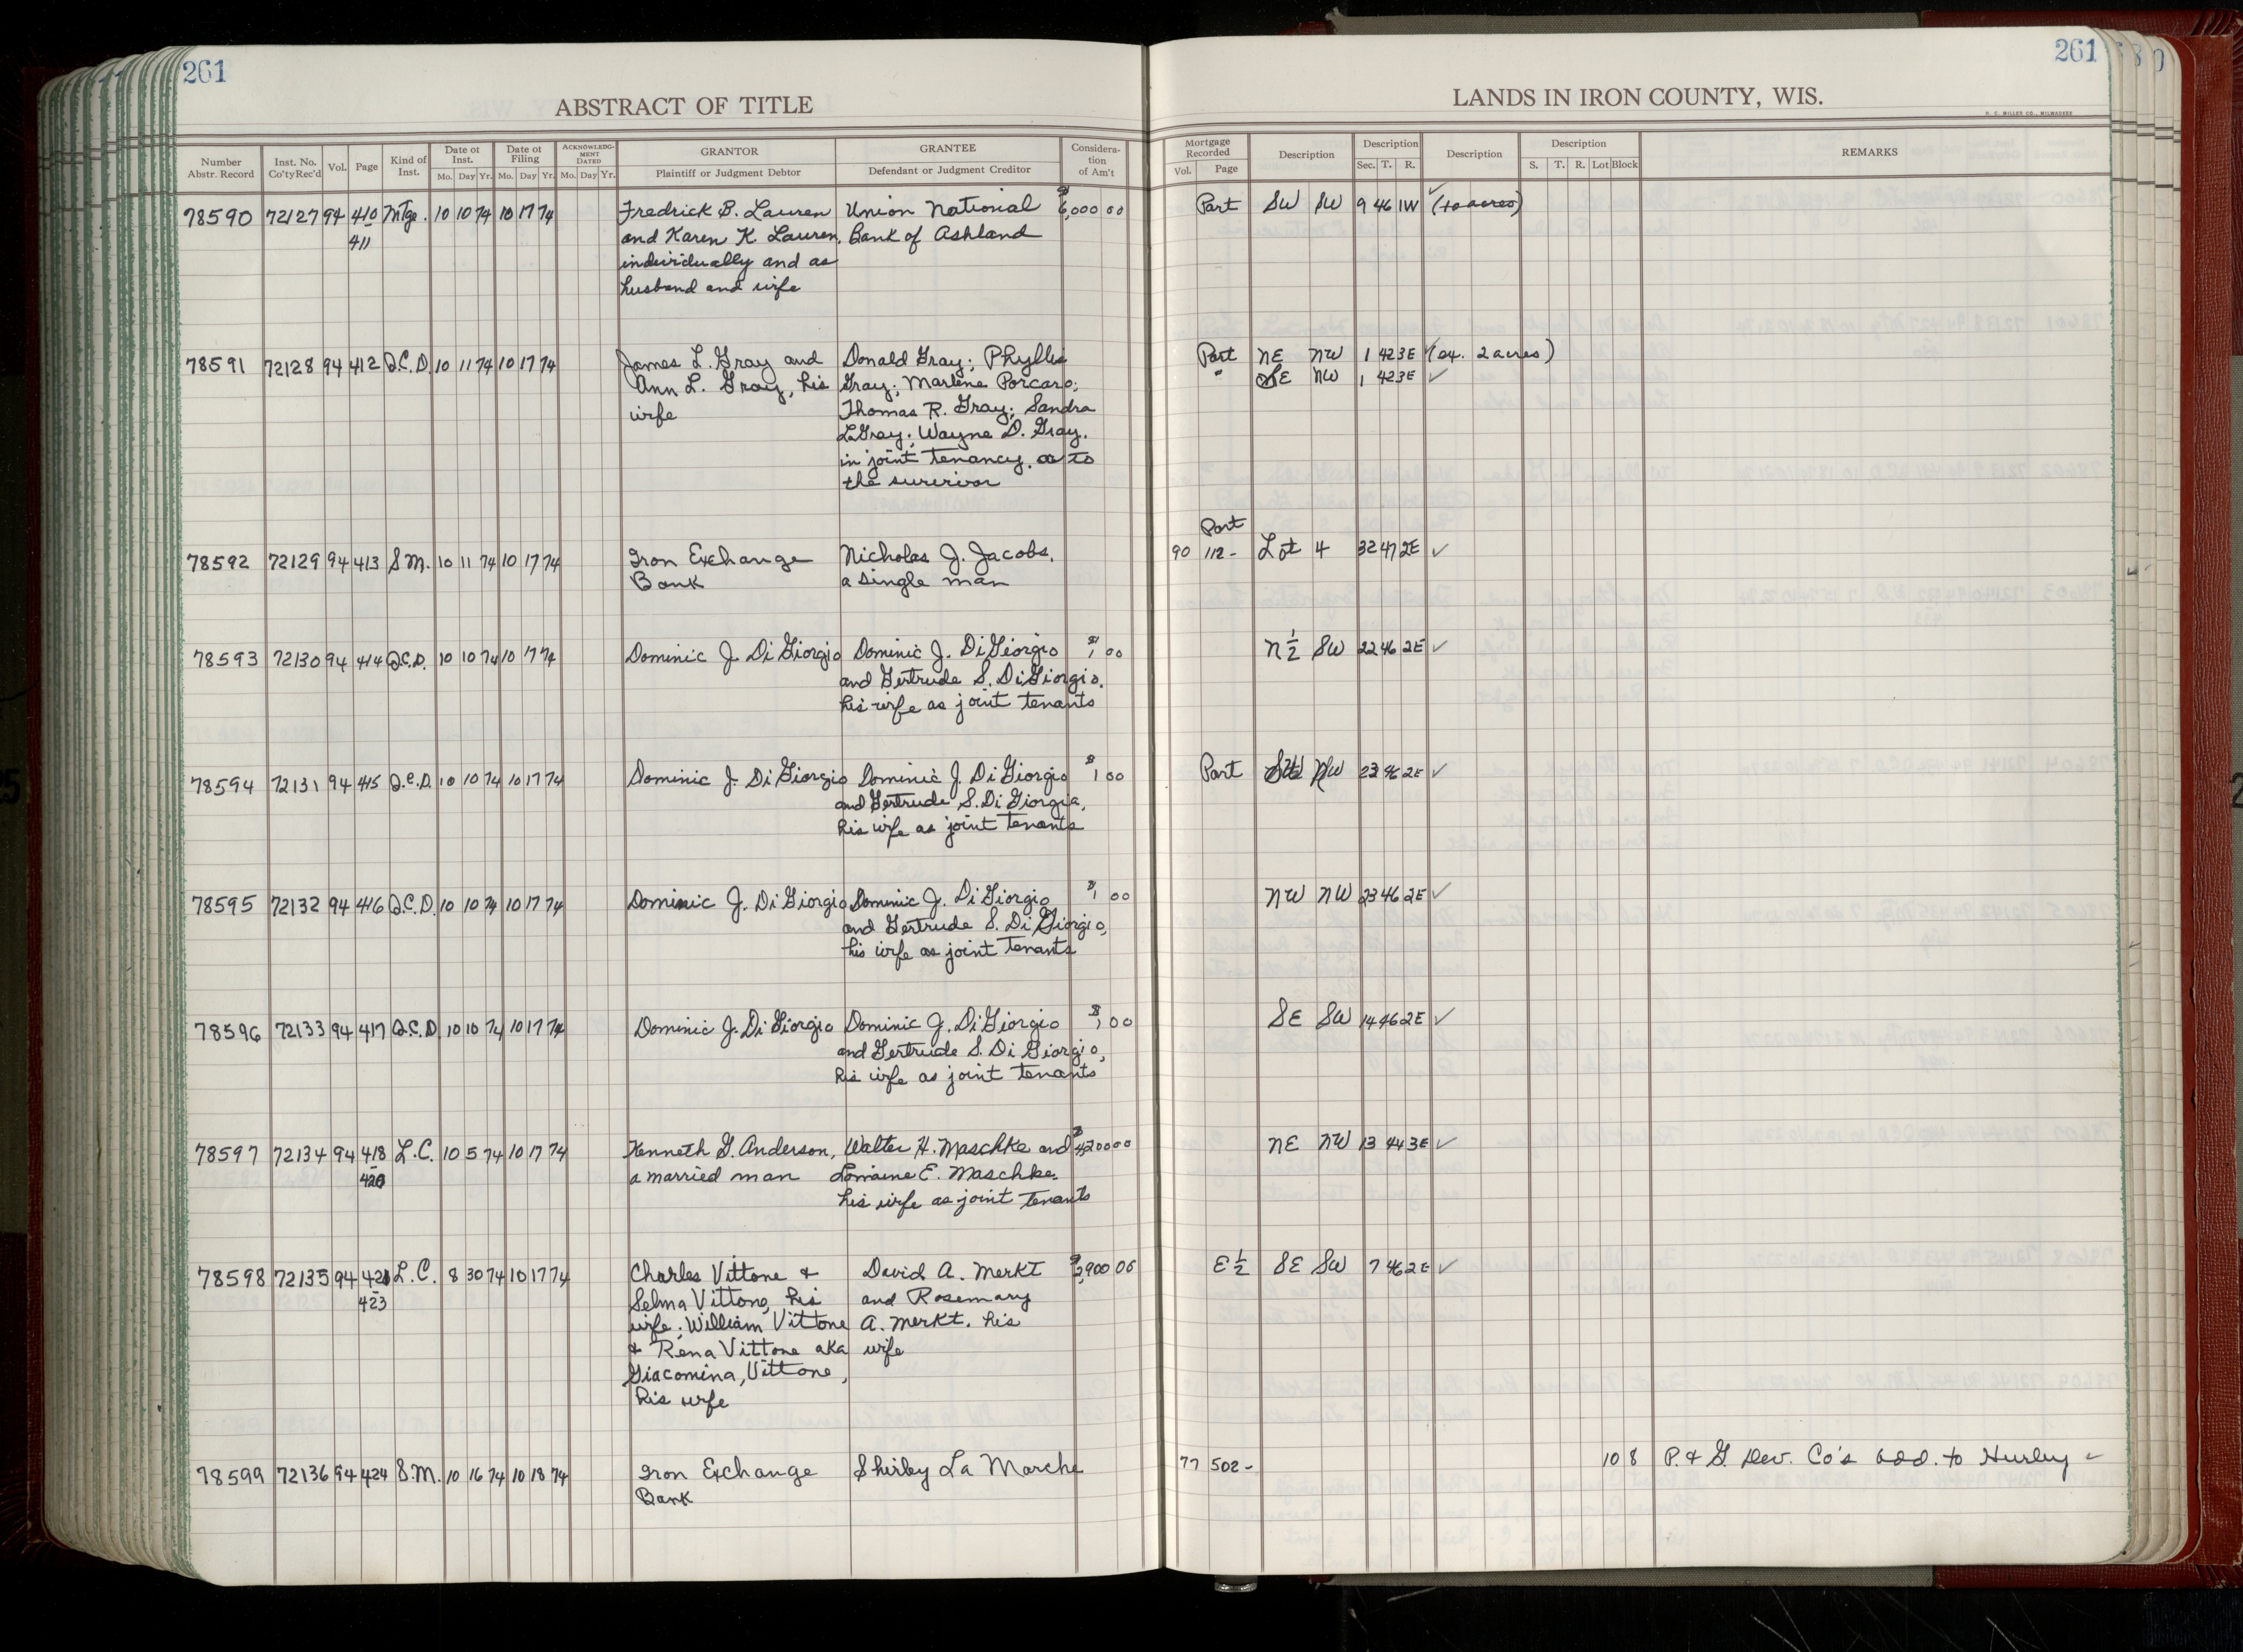 261
ABSTRACT OF TITLE
Number Abstr. Record | Inst. No. Co'ty Rec'd | Vol. | Page | Kind of Inst. | Date of Inst. Mo. Day Yr. | Date of Filing Mo. Day Yr. | ACKNOWLEDGMENT DATED Mo. Day Yr. | GRANTOR Plaintiff or Judgment Debtor | GRANTEE Defendant or Judgment Creditor | Consideration of Am't
261
LANDS IN IRON COUNTY, WIS.
H. C. MILLER CO., MILWAUKEE
Mortgage Recorded Vol. Page | Description | Description Sec. T. R. | Description | Description S. T. R. Lot Block | REMARKS
78590 72127 94 410 Mtge. 10 10 74 10 17 74 Fredrick B. Lauren Union National $6,000 00 Part SW SW 9 46 1W ✓ (10 acres)
- 411 and Karen K. Lauren, Bank of Ashland
individually and as
husband and wife
78591 72128 94 412 Q.C.D. 10 11 74 10 17 74 James L. Gray and Donald Gray; Phyllis Part NE NW 1 42 3E ✓ (ex. 2 acres)
Ann L. Gray, his Gray; Marlene Porcaro; " SE NW 1 42 3E ✓
wife Thomas R. Gray; Sandra
L Gray; Wayne D. Gray,
in joint tenancy, as to
the survivor
Part
78592 72129 94 413 S.M. 10 11 74 10 17 74 Iron Exchange Nicholas J. Jacobs, 90 112- Lot 4 32 47 2E ✓
Bank a single man
78593 72130 94 414 Q.C.D. 10 10 74 10 17 74 Dominic J. DiGiorgio Dominic J. DiGiorgio $1, 00 N½ SW 22 46 2E ✓
and Gertrude S. DiGiorgio,
his wife as joint tenants
78594 72131 94 415 Q.C.D. 10 10 74 10 17 74 Dominic J. DiGiorgio Dominic J. DiGiorgio $1 00 Part SW NW 23 46 2E ✓
and Gertrude S. DiGiorgia,
his wife as joint tenants
78595 72132 94 416 Q.C.D. 10 10 74 10 17 74 Dominic J. DiGiorgio Dominic J. DiGiorgio $1 00 NW NW 23 46 2E ✓
and Gertrude S. DiGiorgio,
his wife as joint tenants
78596 72133 94 417 Q.C.D. 10 10 74 10 17 74 Dominic J. DiGiorgio Dominic J. DiGiorgio $1, 00 SE SW 14 46 2E ✓
and Gertrude S. DiGiorgio,
his wife as joint tenants
78597 72134 94 418 L.C. 10 5 74 10 17 74 Kenneth G. Anderson, Walter H. Maschke and $4200 00 NE NW 13 44 3E ✓
- 420 a married man Lorraine E. Maschke
his wife as joint tenants
78598 72135 94 421 L.C. 8 30 74 10 17 74 Charles Vittone & David A. Merkt 900 00 E½ SE SW 7 46 2E ✓
- 423 Selma Vittone, his and Rosemary
wife; William Vittone A. Merkt, his
& Rena Vittone aka wife
Giacomina, Vittone,
his wife
78599 72136 94 424 S.M. 10 16 74 10 18 74 Iron Exchange Shirley La Marche 77 502- 10 8 P. & G. Dev. Co's add. to Hurley ✓
Bank